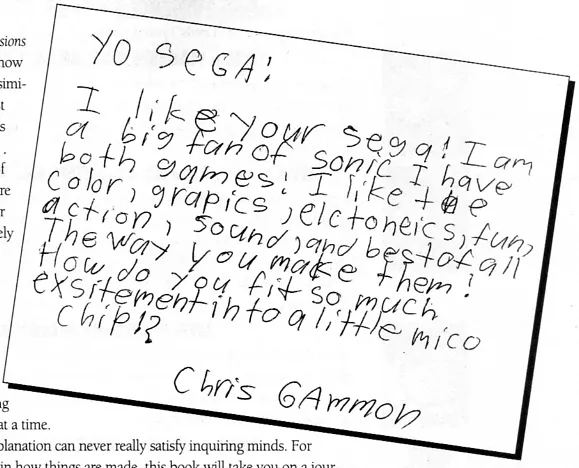 YO SeGA!
I like your sega! I am
a big fan of sonic I have
both games! I like the
color, grapics, elctoneics, fun,
action, sound, and best of all
The way you make them!
How do you fit so much
exsitement into a little mico
Chip!?
Chris GAmmon
sions
now
simi-
st
s
.
f
re
r
ely
ng
at a time.
planation can never really satisfy inquiring minds. For
in how things are made, this book will take you on a jour-